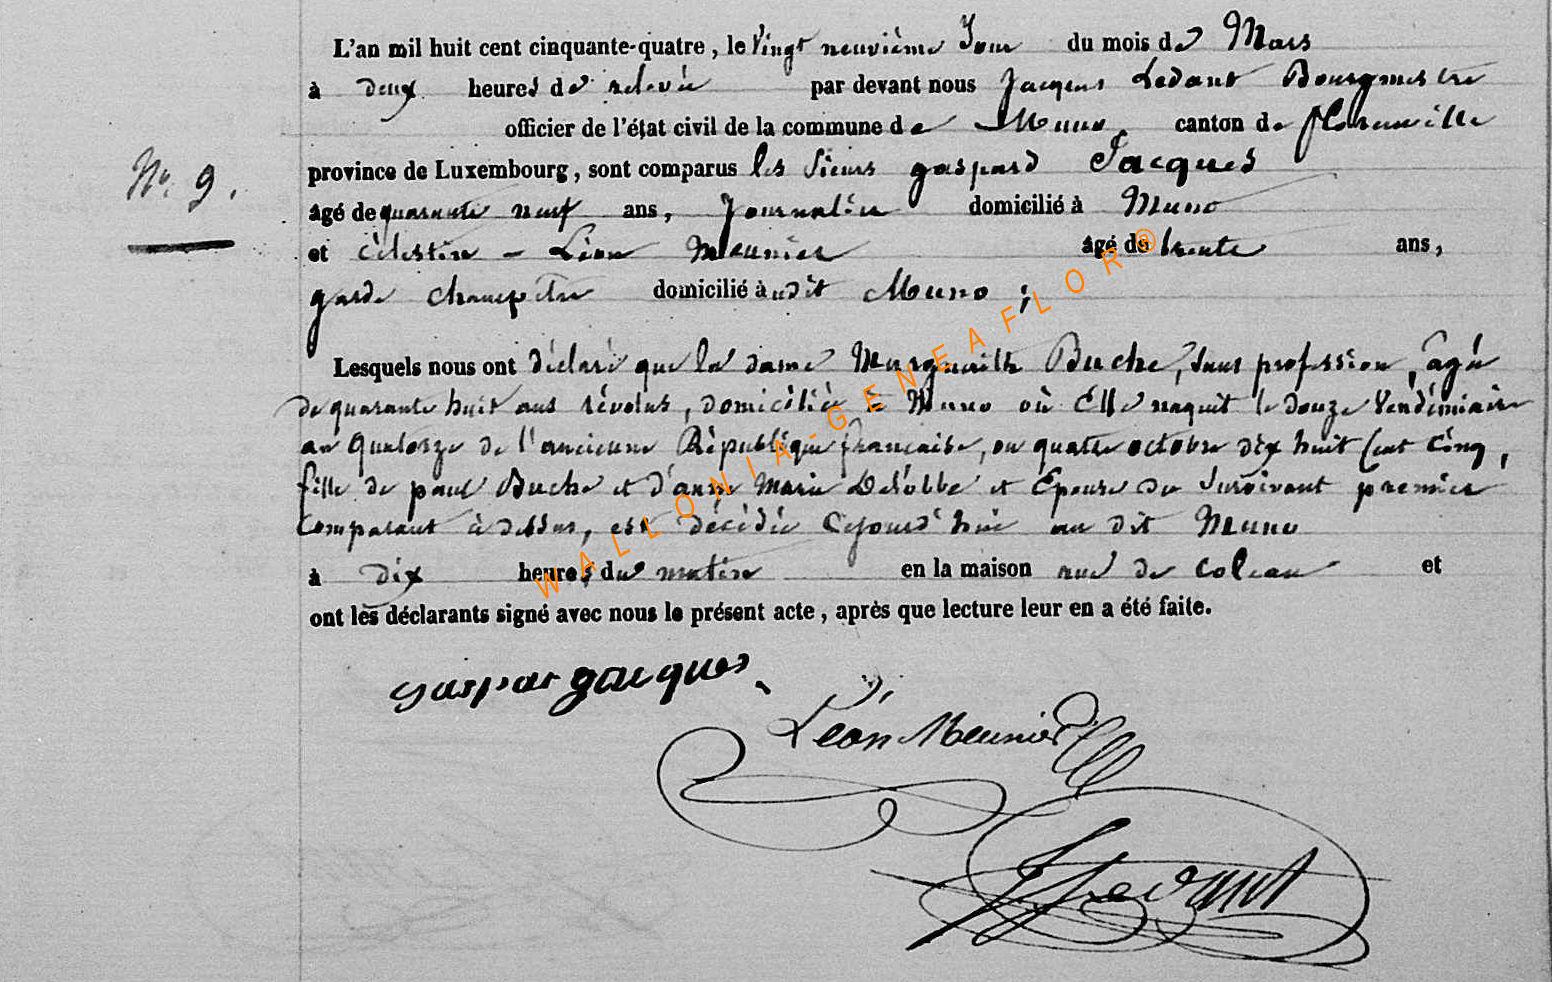 L'an mil huit cent cinquante-quatre, le Vingt neuvième Jour du mois de Mars
à deux heures de relevée par devant nous Jacques Ledant Bourgmestre
officier de l'état civil de la commune de Muno, canton de florenville
N° 9.
province de Luxembourg, sont comparus les sieurs gaspard Jacques
âgé de quarante neuf ans, Journalier domicilié à Muno
et célestin - Léon Meunier âgé de trente ans,
garde champêtre domicilié à udit Muno ;
Lesquels nous ont déclaré que la dame Marguerite Buche, sans profession, agée
de quarante huit ans révolus, domiciliée à Muno où Elle naquit le douze Vendémiaire
an Quatorze de l'ancienne République française, ou quatre octobre dix huit Cent Cinq,
fille de paul Buche et d'anne Marie Delobbe et Epouse du Survivant premier
Comparant à dessus, est décédée Cejourd'hui au dit Muno
à dix heures du matin en la maison rue de et
ont les déclarants signé avec nous le présent acte, après que lecture leur en a été faite.
gaspar jacques
Léon Meunier
JLedant
WALLONIA-GENEAFLOR®